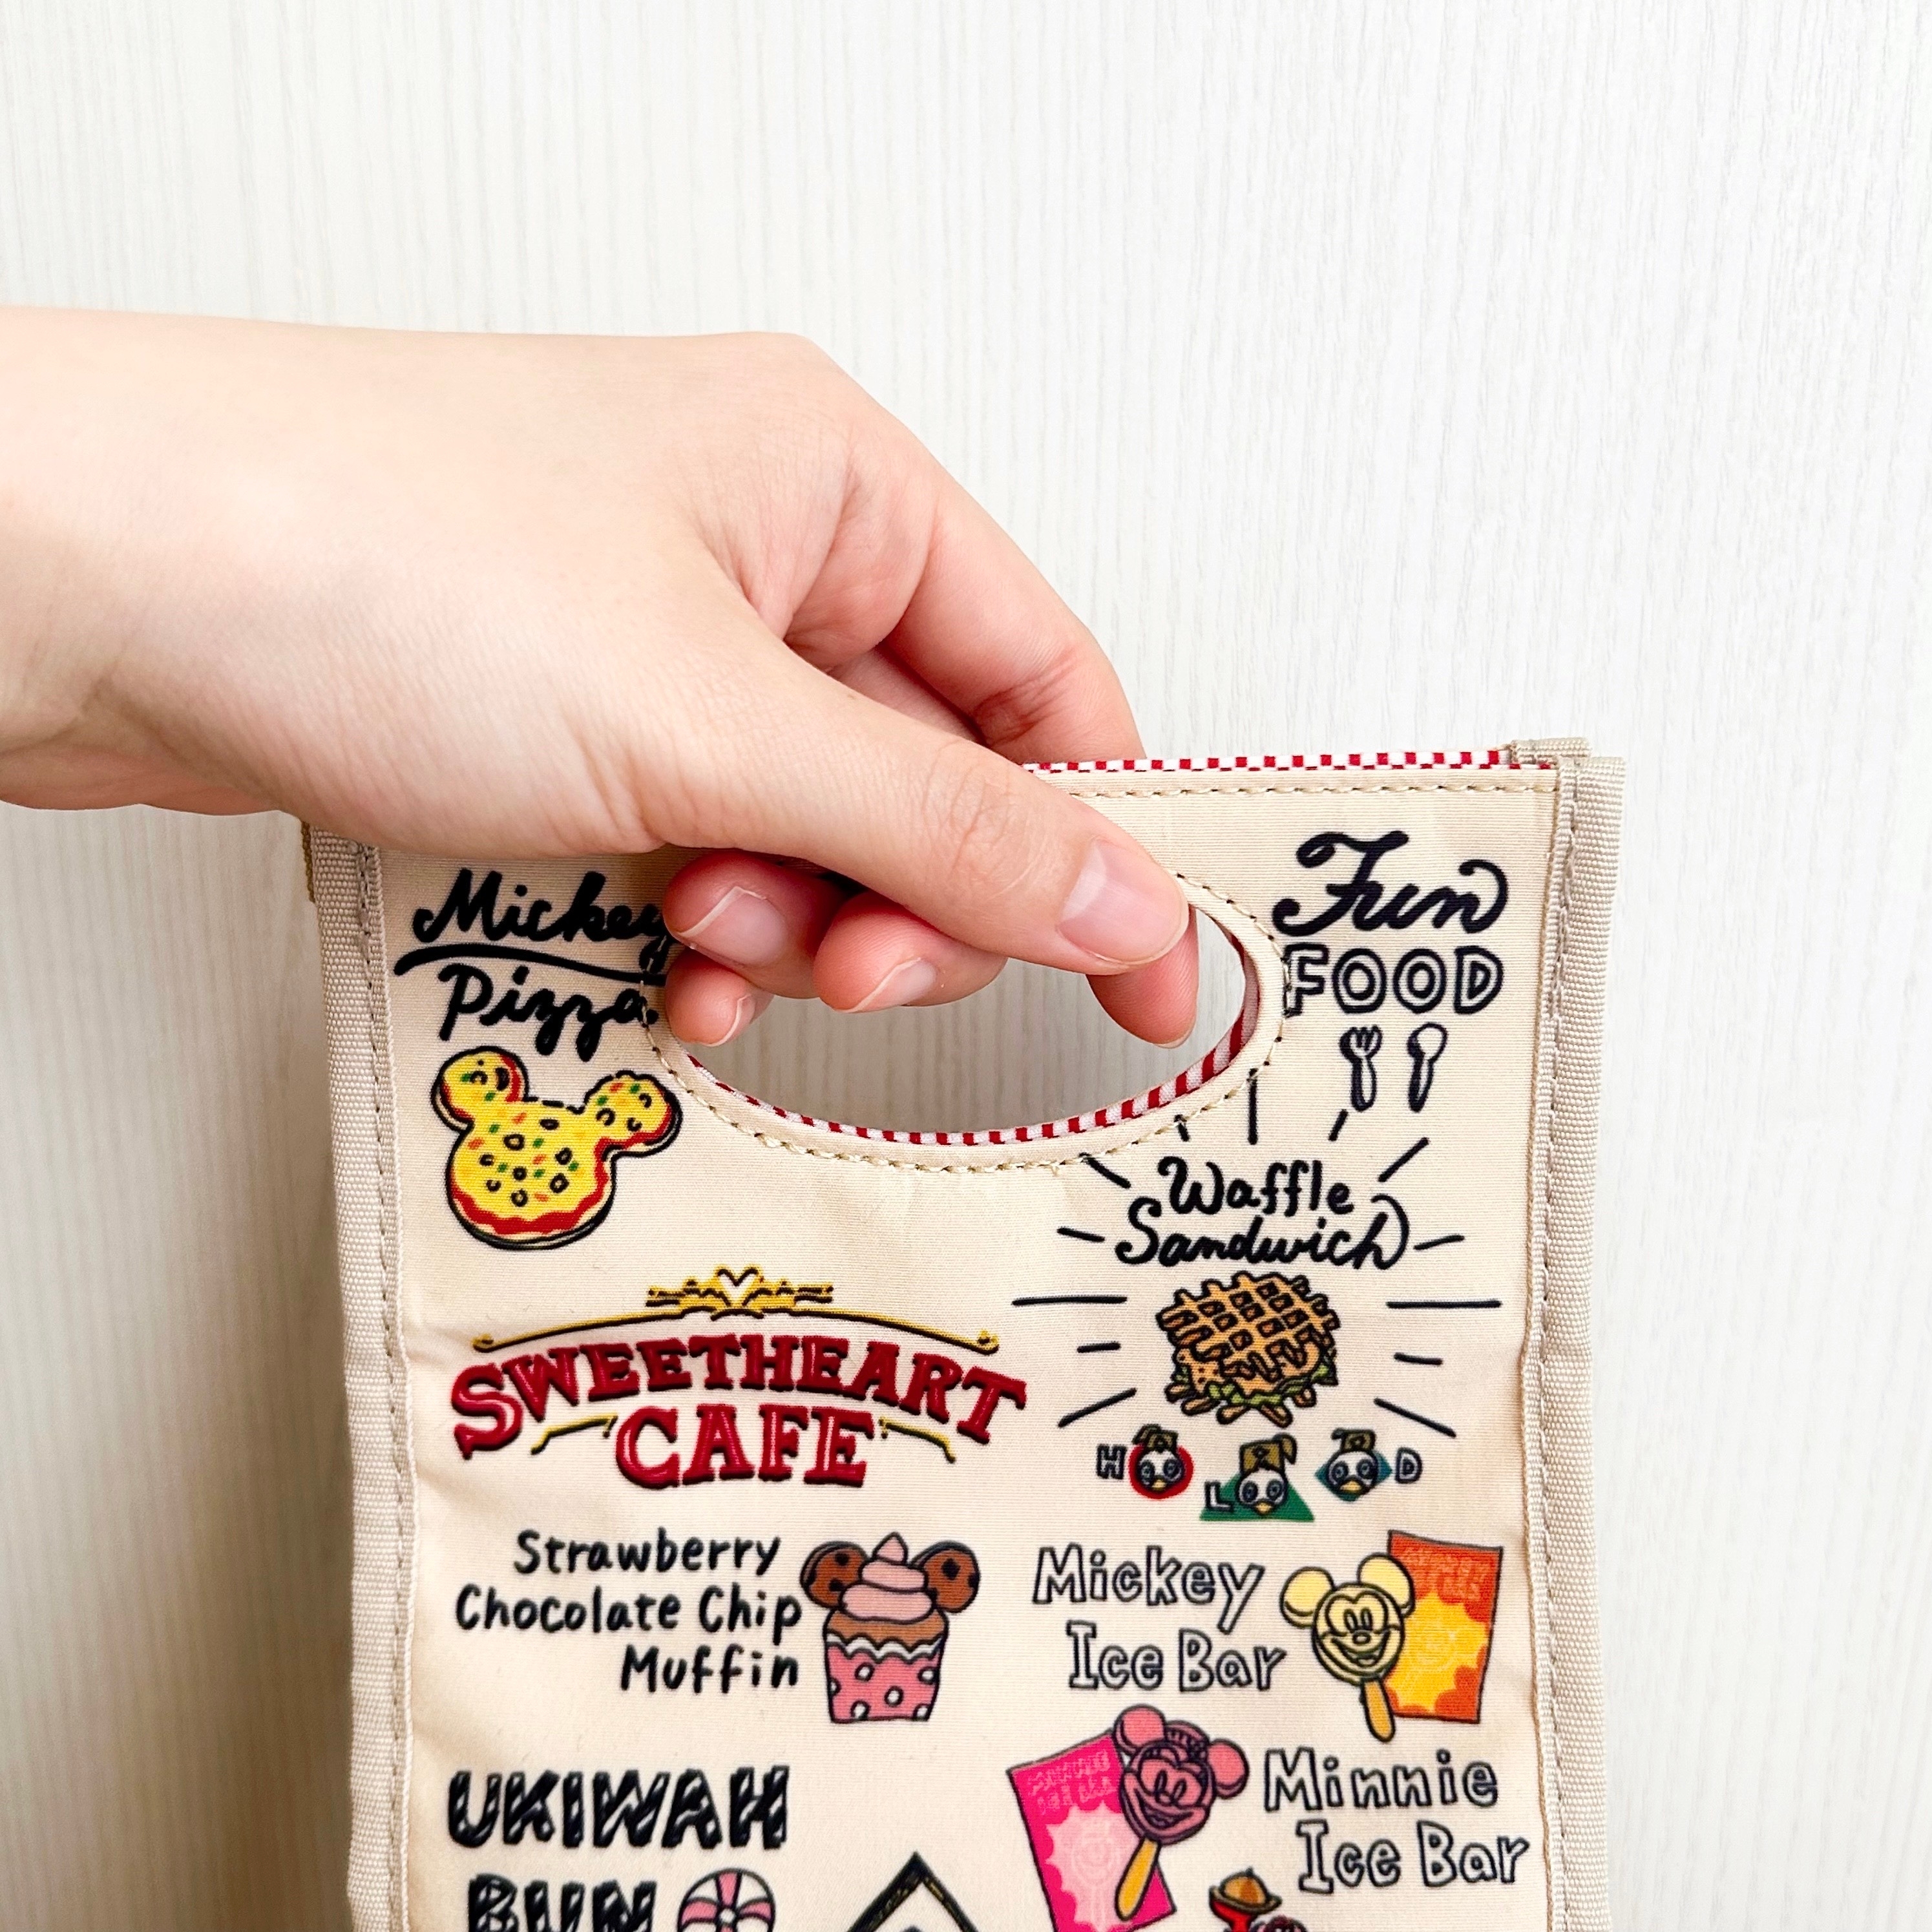 Mickey
Pizza
Fun
FOOD
Waffle
Sandwich
SWEETHEART
CAFE
H
L
D
Strawberry
Chocolate Chip
Muffin
Mickey
Ice Bar
Minnie
Ice Bar
UKIWAH
BUN